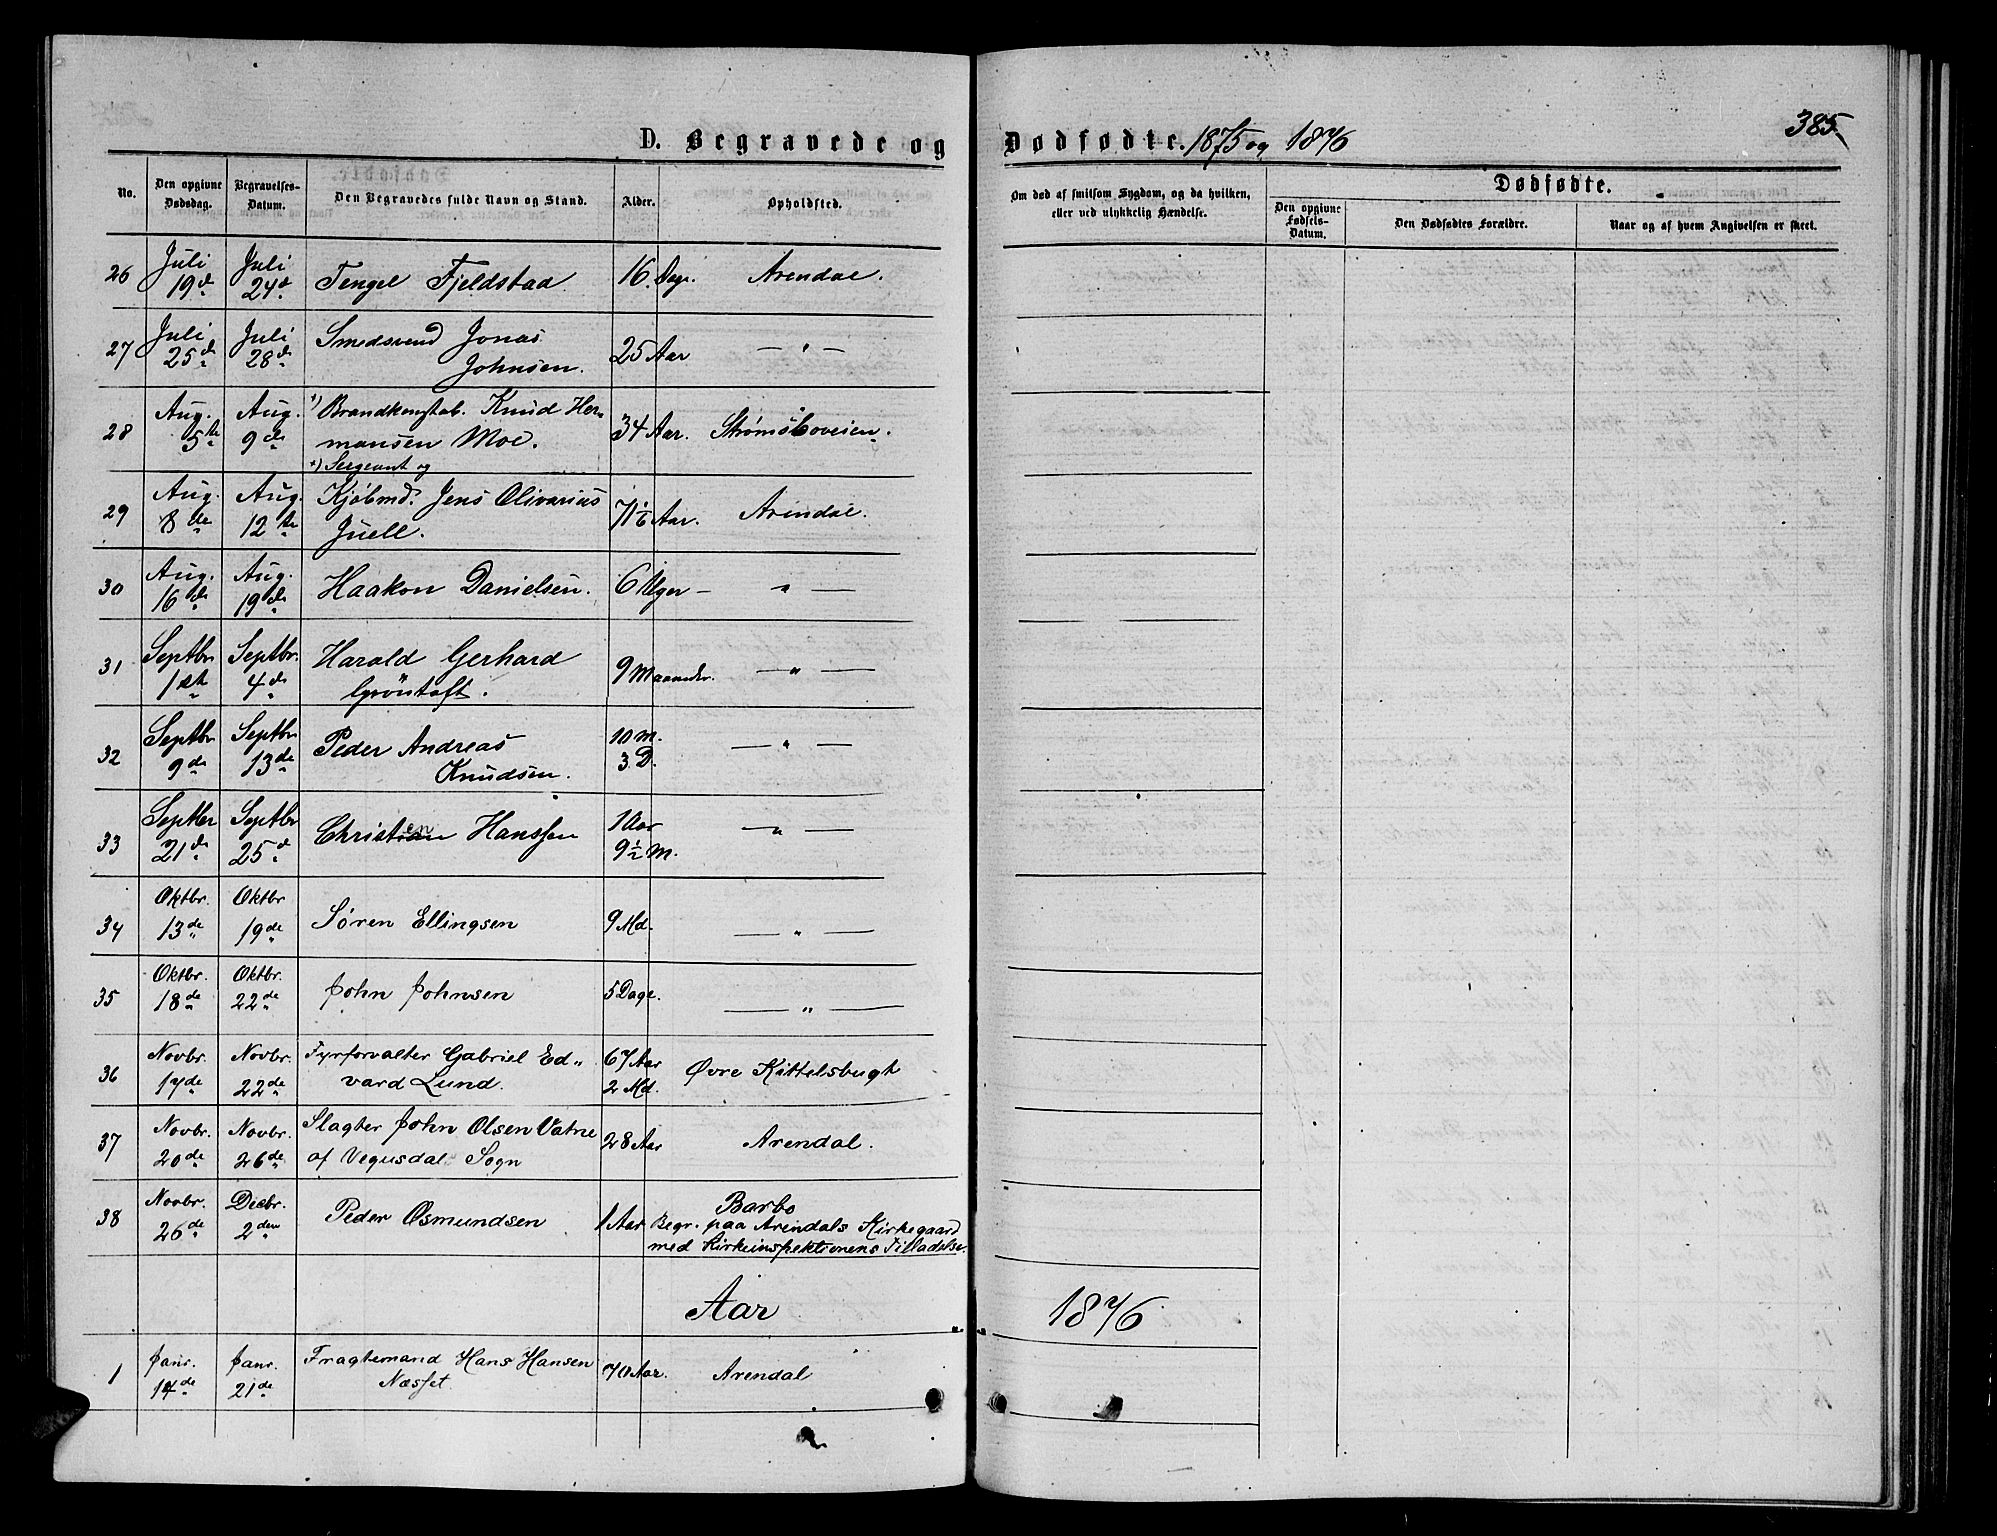 385
D. Begravede og Dødfødte. 1875 og 1876
No.
Den opgivne Dødsdag.
Begravelses-Datum.
Den Begravedes fulde Navn og Stand.
Alder.
Opholdsted.
Om død af smitsom Sygdom, og da hvilken, eller ved ulykkelig Hændelse.
Dødfødte.
Den opgivne Fødsels-Datum.
Den Dødfødtes Forældre.
Naar og af hvem Angivelsen er skeet.
26 Juli 19de Juli 24de Tengel Fjeldstad 16 Dage. Arendal.
27 Juli 25de Juli 28de Smedsvend Jonas
Johnsen. 25 Aar — " —
28 Aug. 5te Aug. 9de +) Brandkonstab. Knud Her-
mansen Moe. 34 Aar. Strømsboveien.
+) Sergeant og
29 Aug. 8de Aug. 12te Kjøbmd. Jens Olivarius
Juell. 71 1/6 Aar. Arendal.
30 Aug. 16de Aug. 19de Haakon Danielsen. 6 Uger — " —
31 Septbr 1ste Septbr. 4de Harald Gerhard
Gröntoft. 9 Maaneder. — " —
32 Septbr 9de Septbr 13de Peder Andreas
Knudsen. 10 M. 3 D. — " —
33 Septbr 21de Septbr 25de Christen Hanssen 1 Aar 9 1/2 M. — " —
34 Oktbr. 13de Oktbr. 19de Søren Ellingsen 9 Md. — " —
35 Oktbr. 18de Oktbr. 22de John Johnsen 5 Dage. — " —
36 Novbr. 17de Novbr. 22de Fyrforvalter Gabriel Ed-
vard Lund. 67 Aar 2 Md. Øvre Kittelsbugt
37 Novbr. 20de Novbr. 26de Slagter John Olsen Vatne
af Vegusdal Sogn 28 Aar Arendal.
38 Novbr. 26de Decbr. 2den Peder Osmundsen 1 Aar Barbo
Begr. paa Arendals Kirkegaard
med Kirkeinspektionens Tilladelse.
Aar 1876
1 Janr. 14de Janr. 21de Fragtemand Hans Hansen
Næsset. 70 Aar. Arendal